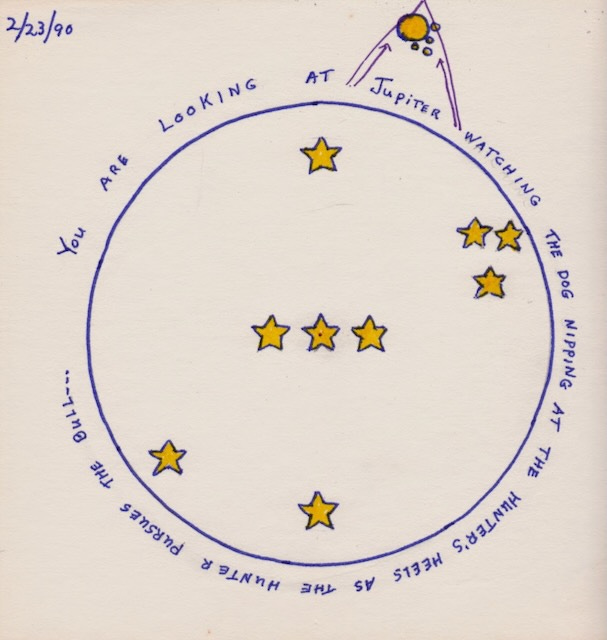 2/23/90
YOU ARE LOOKING AT JUPITER WATCHING THE DOG NIPPING AT THE HUNTER'S HEELS AS THE HUNTER PURSUES THE BULL----